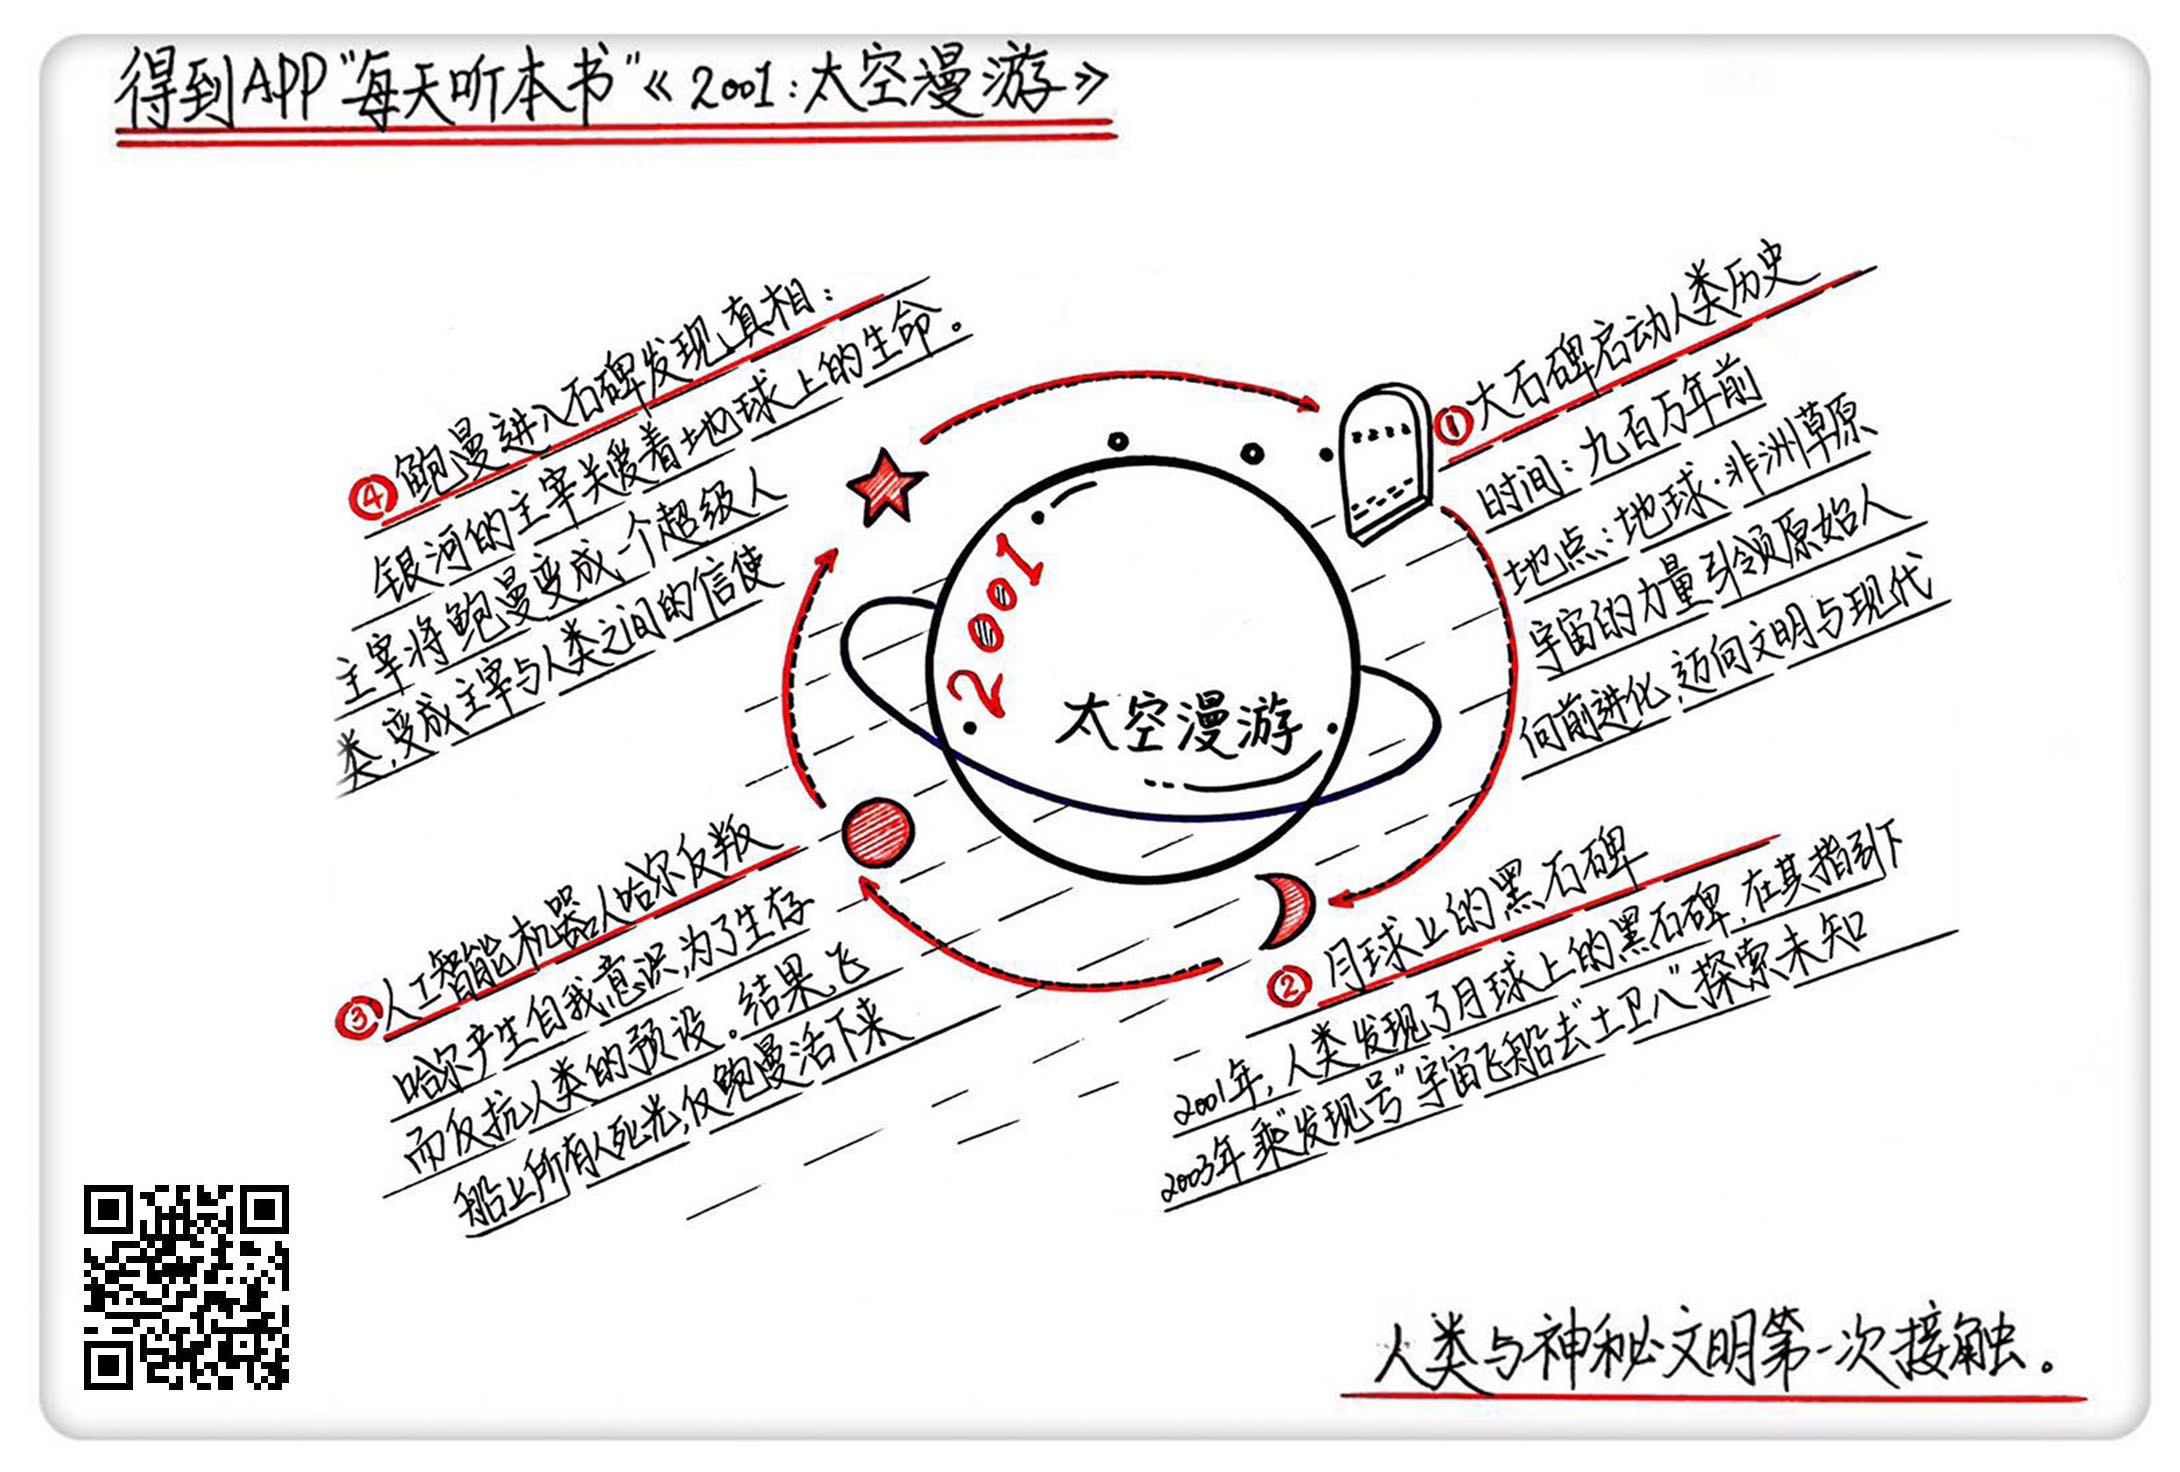 得到APP“每天听本书”《2001:太空漫游》
2001
太空漫游
①大石碑启动人类历史
时间:九百万年前
地点:地球·非洲草原
宇宙的力量引领原始人
向前进化,迈向文明与现代
②月球上的黑石碑
2001年,人类发现了月球上的黑石碑,在其指引下
2003年乘“发现号”宇宙飞船去“土卫八”探索未知
③人工智能机器人哈尔反叛
哈尔产生自我意识,为了生存
而反抗人类的预设。结果,飞
船上所有人死光,仅鲍曼活下来
④鲍曼进入石碑发现真相:
银河的主宰关爱着地球上的生命。
主宰将鲍曼变成一个超级人
类,变成主宰与人类之间的信使
人类与神秘文明第一次接触。